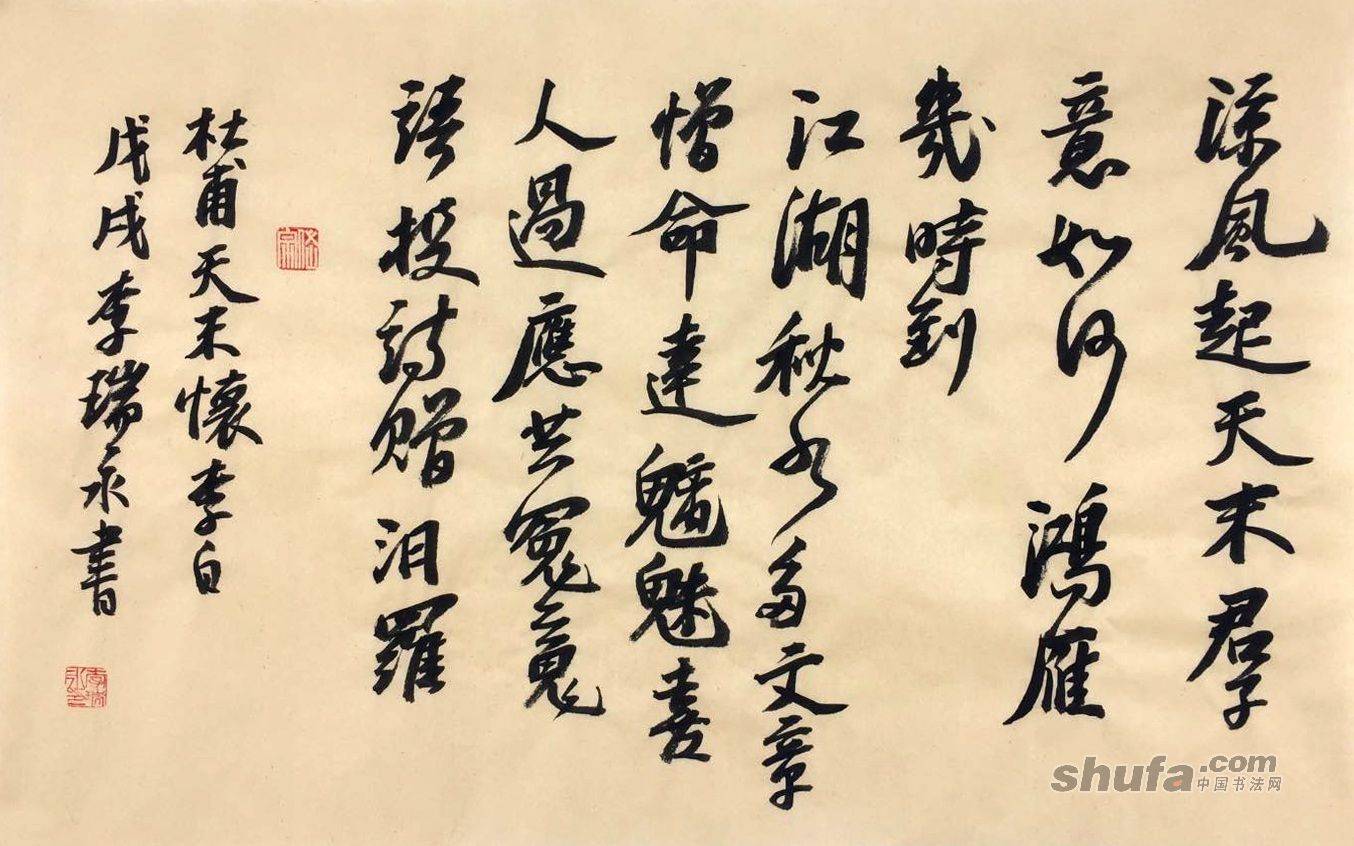 涼風起天末君子
意如何鴻雁
幾時到
江湖秋水多文章
憎命達魑魅喜
人過應共冤魂
語投詩贈汨羅
杜甫天末懷李白
戊戌李瑞永書
shufa.com
中国书法网